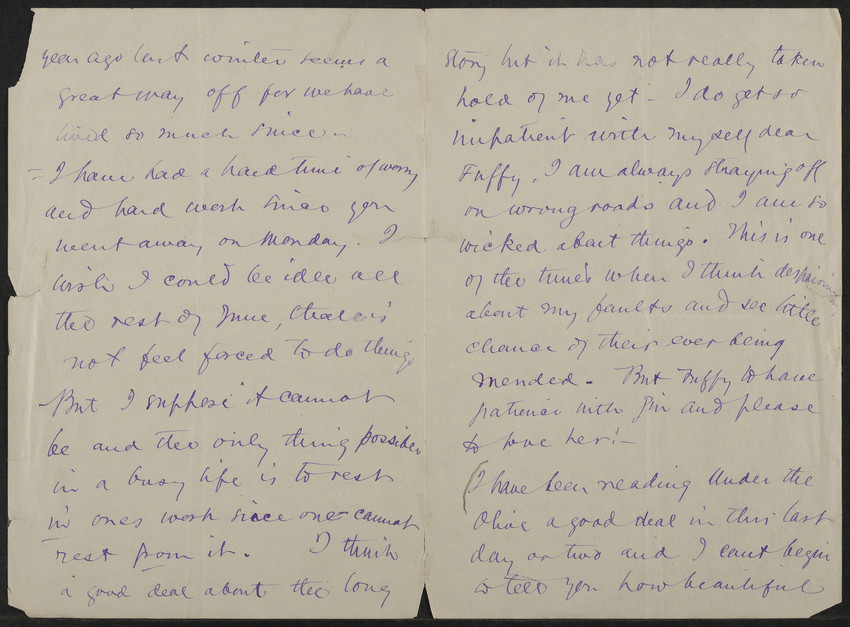 year ago last winter seems a
great way off for we have
lived so much since –
= I have had a hard time of worry
and hard work since you
went away on Monday. I
wish I could be idle all
the rest of June, that is
not feel forced to do things
– But I suppose it cannot
be and the only thing possible
in a busy life is to rest
in ones work since one cannot
rest from it. I think
a good deal about the long
story but it has not really taken
hold of me yet – I do get so
impatient with myself dear
Fuffy. I am always straying off
on wrong roads and I am so
wicked about things. This is one
of the times when I think despairingly
about my faults and see little
chance of their ever being
mended – But Fuffy to have
patience with Pin and please
to love her! –
(I have been reading Under the
Olive a good deal in this last
day or two and I cant begin
to tell you how beautiful